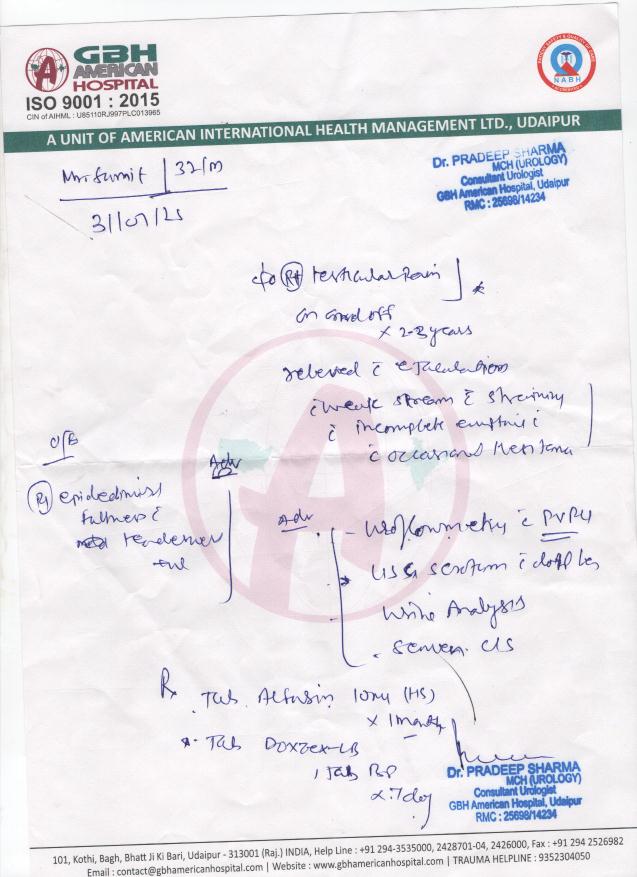 GBH
AMERICAN
HOSPITAL
ISO 9001 : 2015
CIN of AIHML : U85110RJ997PLC013965
NABH
A UNIT OF AMERICAN INTERNATIONAL HEALTH MANAGEMENT LTD., UDAIPUR
Dr. PRADEEP SHARMA
MCH (UROLOGY)
Consultant Urologist
GBH American Hospital, Udaipur
RMC : 25698/14234
Mr. Sumit | 32/m
31/07/25
c/o Rt testicular Pain
on and off
x 2-3 years
relieved c ejaculation
c weak stream c straining
c incomplete
c occasional
O/E
Adv
Rt
fullness c
tenderness
+ve
Adv
- Uroflowmetry c PVRU
USG scrotum c doppler
Urine Analysis
Semen C/S
Rx
Tab Alfusin 10mg (HS)
x 1 month
Tab Doxzex-LB
1 Tab BD
x 7 day
Dr. PRADEEP SHARMA
MCH (UROLOGY)
Consultant Urologist
GBH American Hospital, Udaipur
RMC : 25698/14234
101, Kothi, Bagh, Bhatt Ji Ki Bari, Udaipur - 313001 (Raj.) INDIA, Help Line : +91 294-3535000, 2428701-04, 2426000, Fax : +91 294 2526982
Email : contact@gbhamericanhospital.com | Website : www.gbhamericanhospital.com | TRAUMA HELPLINE : 9352304050